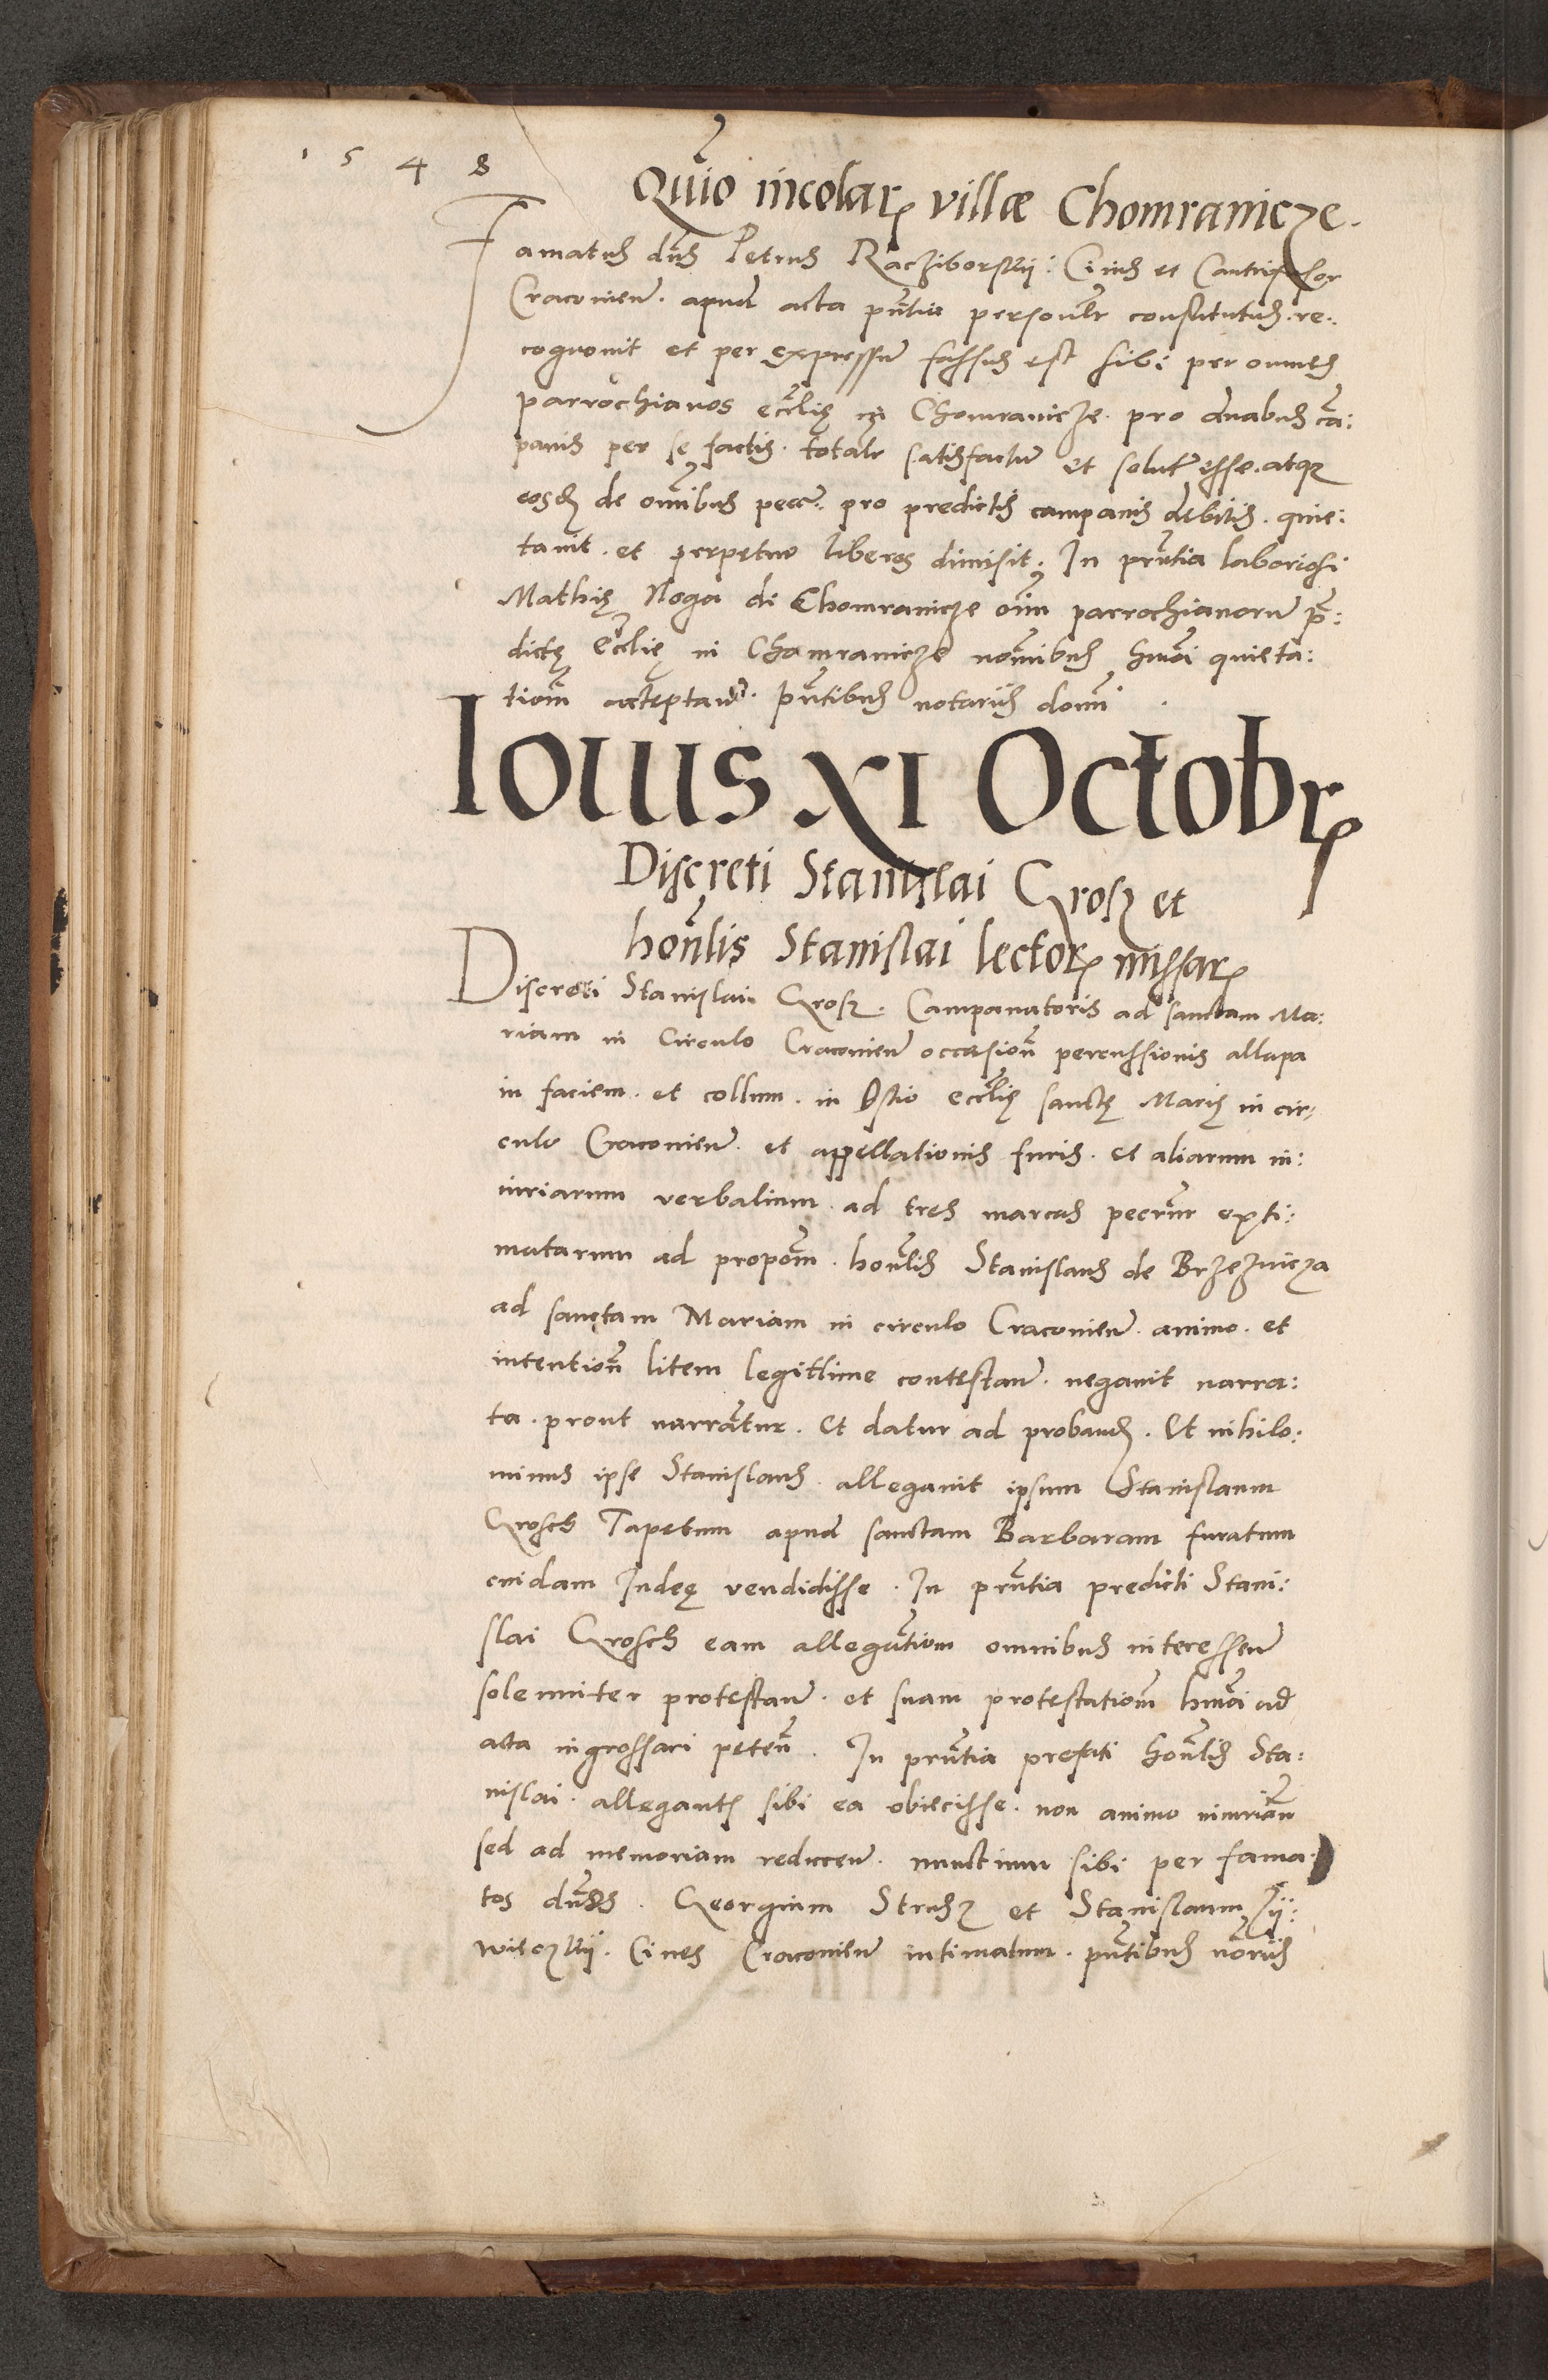 1 5 4 8
Quio incolar villæ Chomranicze.
Famatus dns Petrus Racziborskij: Civis et Cantrifusor
Cracovien. apud acta pntia personlr constitutus. re:
cognovit et per expressum fassus est sibi per omnes
parrochianos ecclię in Chomranicze. pro duabus cã:
panis per se factis. totalr satisfactum et solutum esse. atqz
eosdem de omnibus pecc. pro predictis campanis debitis. quie:
tavit. et perpetuo liberos dimisit. In prntia laboriosi
Mathię Noga de Chomranicze oim parrochianorum prę:
dictę Ecclię in Chomranicze nomibus hmoi quieta:
tiom acceptavit. Pntibus notariis domi.
Iovis XI Octobr
Discreti Stanislai Grosz et
honlis Stanislai lector missar
Discreti Stanislai Grosz. Campanatoris ad sanctam Ma:
riam in Circulo Cracovien occasion percussionis allapa
in faciem. et collum. in Ostio ecclię sanctę Marię in cir,
culo Cracovien. et appellationis furis. et aliarum in:
iuriarum verbalium. ad tres marcas pecrum exti:
matarum ad propom. honlis Stanislaus de Brzeznicza
ad sanctam Mariam in circulo Cracovien. animo. et
intention litem legittime contestan. negavit narra:
ta. prout narrantur. Et datur ad proband. Et nihilo:
minus ipse Stanislaus. allegavit ipsum Stanislaum
Grosch Tapetum apud sanctam Barbaram furatum
cuidam Iudeę vendidisse. In prntia predicti Stani:
slai Grosch eam allegationem omnibus interessen
solenniter protestan. et suam protestationm hmoi ad
acta ingrossari peten. In prntia prefati honlis Sta:
nislai. allegantis sibi ea obiecisse. non animo iniurian
sed ad memoriam reducen. nunctium sibi per fama.
tos dnos. Georgium Strusz et Stanislaum Zÿ:
wieczkij. Cives Cracovien intimatum. pntibus noriis